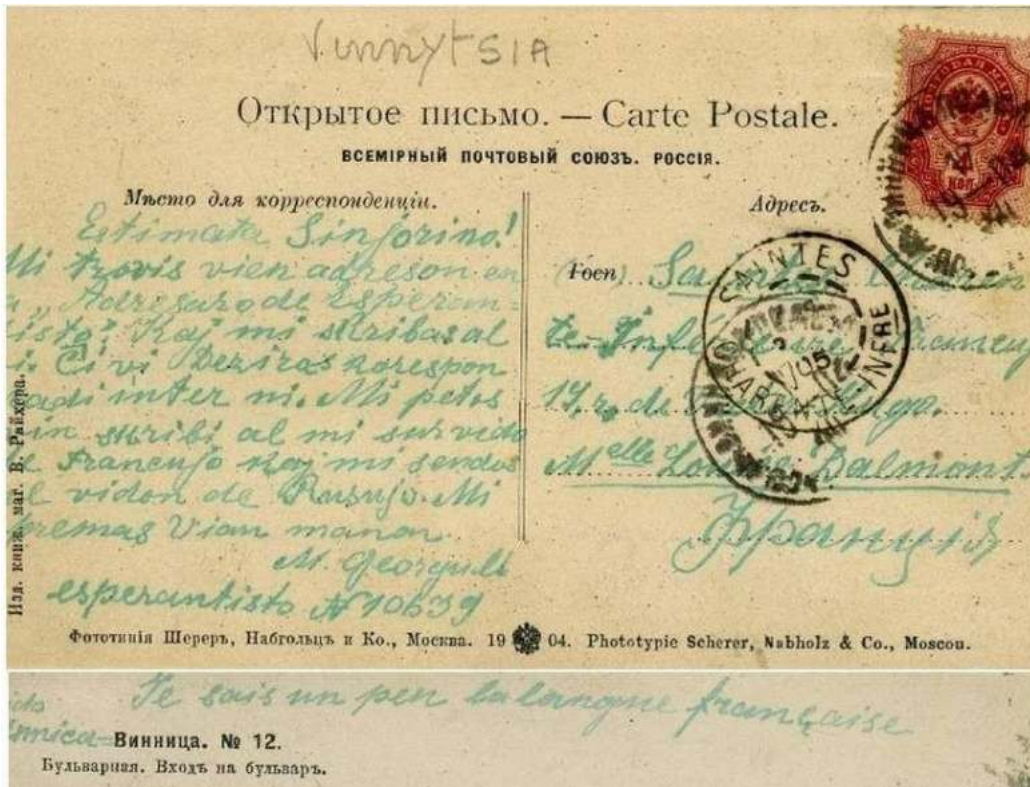 VinnytSIA
Открытое письмо. — Carte Postale.
ВСЕМІРНЫЙ ПОЧТОВЫЙ СОЮЗЪ. РОССІЯ.
Мѣсто для корреспонденціи.
Estimata Sinjorino!
Mi trovis vian adreson en
"Adresaro de Esperan-
isto". Kaj mi skribas al
Ĉi vi deziras korespon
adi inter ni. Mi petos
in skribi al mi sur vido
de Francujo kaj mi sendos
vidon de Rusujo. Mi
premas Vian manon.
M. Georguli
esperantisto № 10639
Адресъ.
Saintes Charen
te-Inférieure Francujo
17, r. de
Mlle Dalmont
Франція
SAINTES
CHARENTE-INFRE
Изд. книж. маг. В. Райхера.
Фототипія Шереръ, Набгольцъ и Ко., Москва. 19 04. Phototypie Scherer, Nabholz & Co., Moscou.
Je sais un peu la langue française
Винница. № 12.
Бульварная. Входъ на бульваръ.